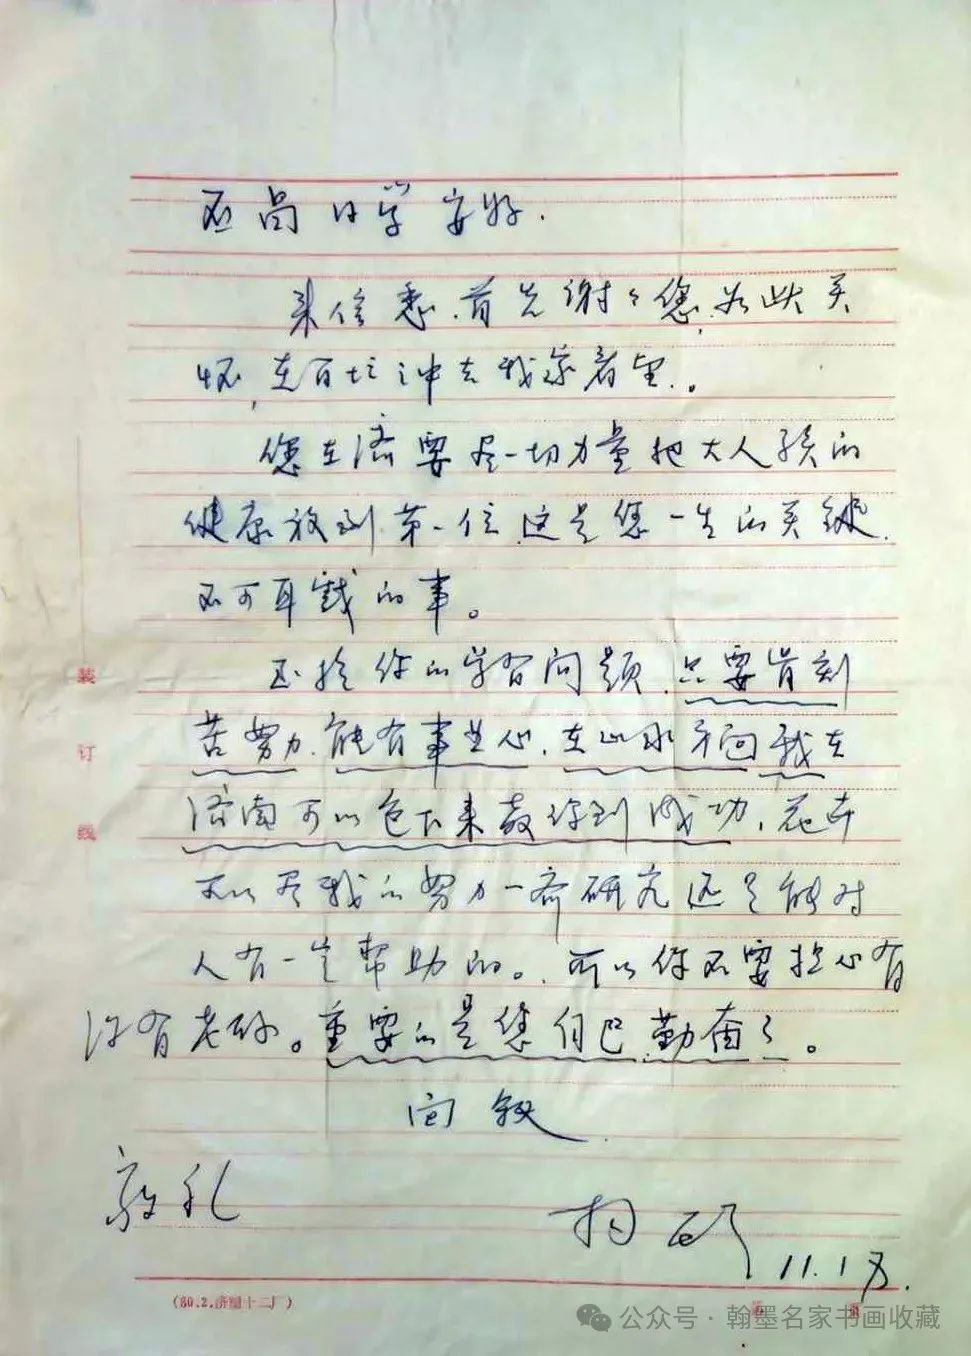 同学安好.
来信悉.首先谢々您.如此关
怀,在百忙之中去我家看望.
您在济要尽一切力量把大人孩的
健康放到第一位.这是您一生的关键.
不可耳戏的事。
至于你的学习问题.只要肯刻
苦努力.能有事业心.在山水方面我在
济南可以包下来教你到成功.花卉
可以尽我的努力一齐研究还是能对
人有一定帮助的。所以你不要担心有
没有老师。重要的是您自己勤奋了。
面叙
敬礼
11.17.
装
订
线
(80.2.济塑十二厂)
公众号·翰墨名家书画收藏